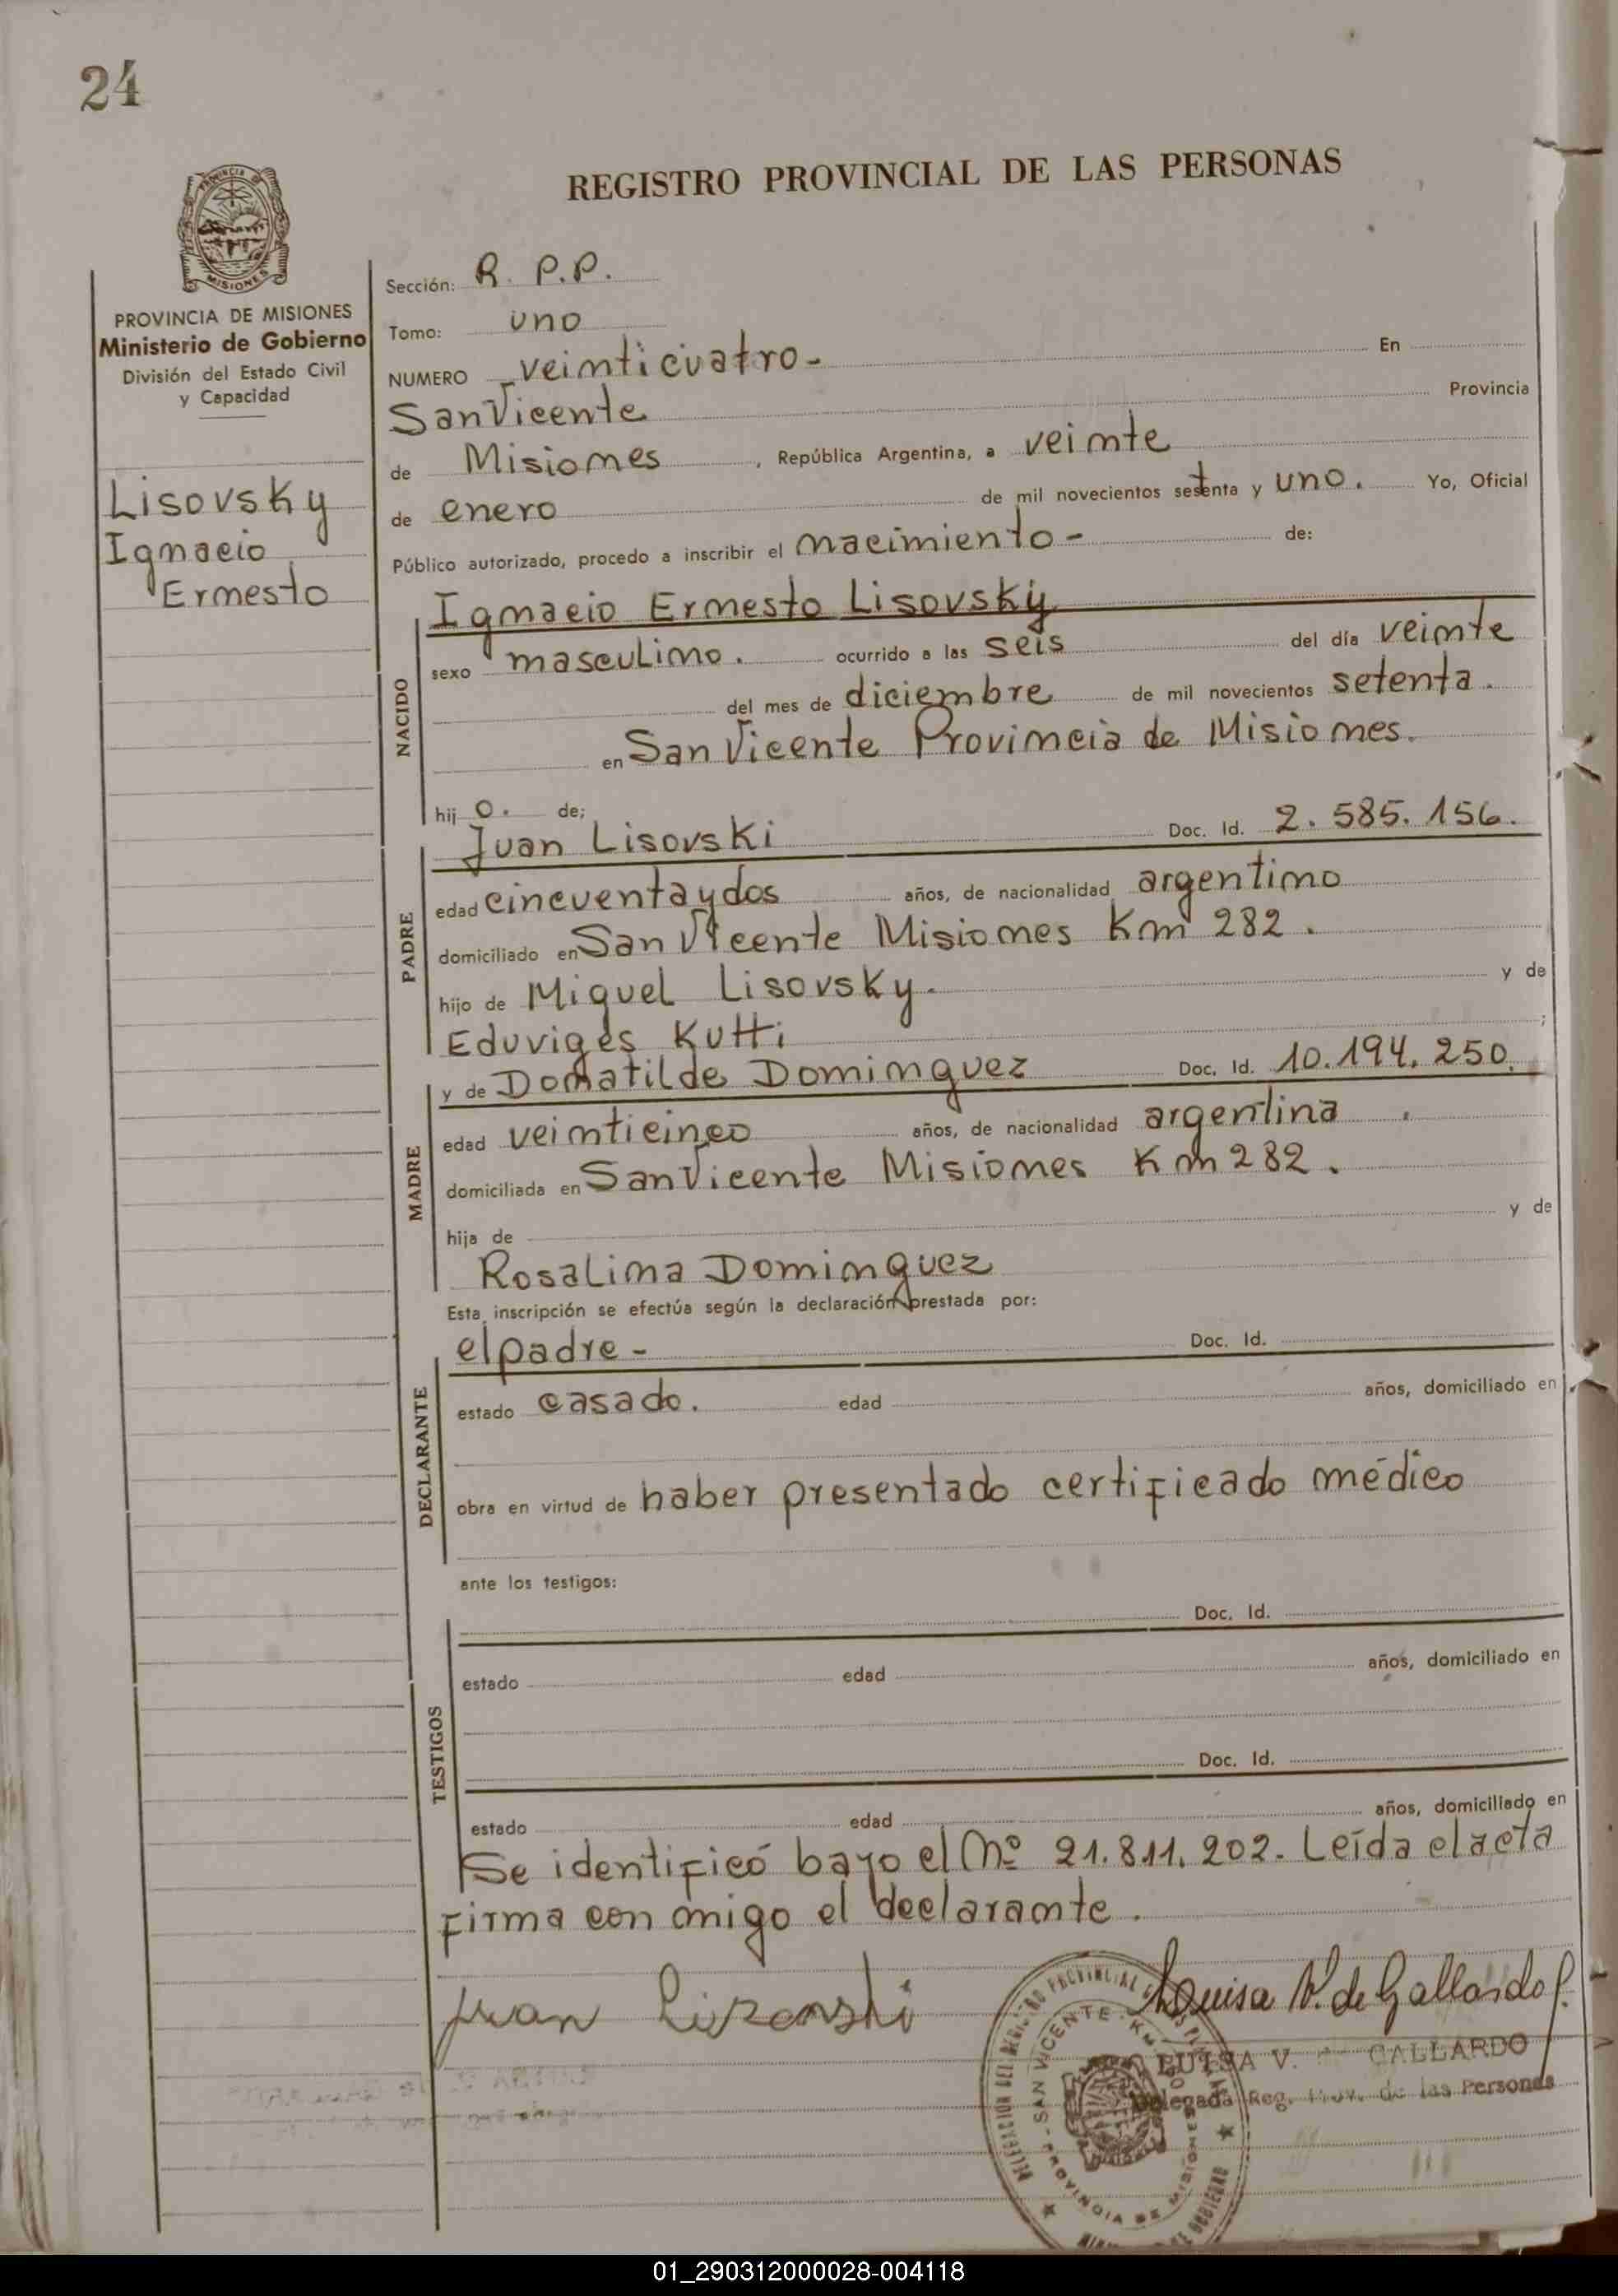 24
REGISTRO PROVINCIAL DE LAS PERSONAS
PROVINCIA DE MISIONES
Ministerio de Gobierno
División del Estado Civil
y Capacidad
Lisovsky
Ignacio
Ernesto
Sección: R. P.P.
Tomo: uno
NUMERO veinticuatro- En
San Vicente Provincia
de Misiones, República Argentina, a veinte
de enero de mil novecientos setenta y uno. Yo, Oficial
Público autorizado, procedo a inscribir el nacimiento- de:
NACIDO
Ignacio Ernesto Lisovsky
sexo masculino. ocurrido a las seis del día veinte
del mes de diciembre de mil novecientos setenta.
en San Vicente Provincia de Misiones.
hij o. de;
PADRE
Juan Lisovski Doc. Id. 2.585.156.
edad cincuenta y dos años, de nacionalidad argentino
domiciliado en San Vicente Misiones Km 282.
hijo de Miguel Lisovsky. y de
Eduviges Kutti ;
MADRE
y de Domatilde Dominguez Doc. Id. 10.194.250.
edad veinticinco años, de nacionalidad argentina.
domiciliada en San Vicente Misiones Km 282.
hija de y de
Rosalina Dominguez
Esta inscripción se efectúa según la declaración prestada por:
DECLARANTE
el padre- Doc. Id.
estado casado. edad años, domiciliado en
obra en virtud de haber presentado certificado médico
ante los testigos:
TESTIGOS
Doc. Id.
estado edad años, domiciliado en
Doc. Id.
estado edad años, domiciliado en
Se identificó bajo el Nº 21.811.202. Leída el acta
firma con migo el declarante.
Juan Lisovski
Luisa V. de Gallardo
LUISA V. GALLARDO
Delegada Reg. Prov. de las Personas
SAN VICENTE
PROVINCIA DE MISIONES
01_290312000028-004118